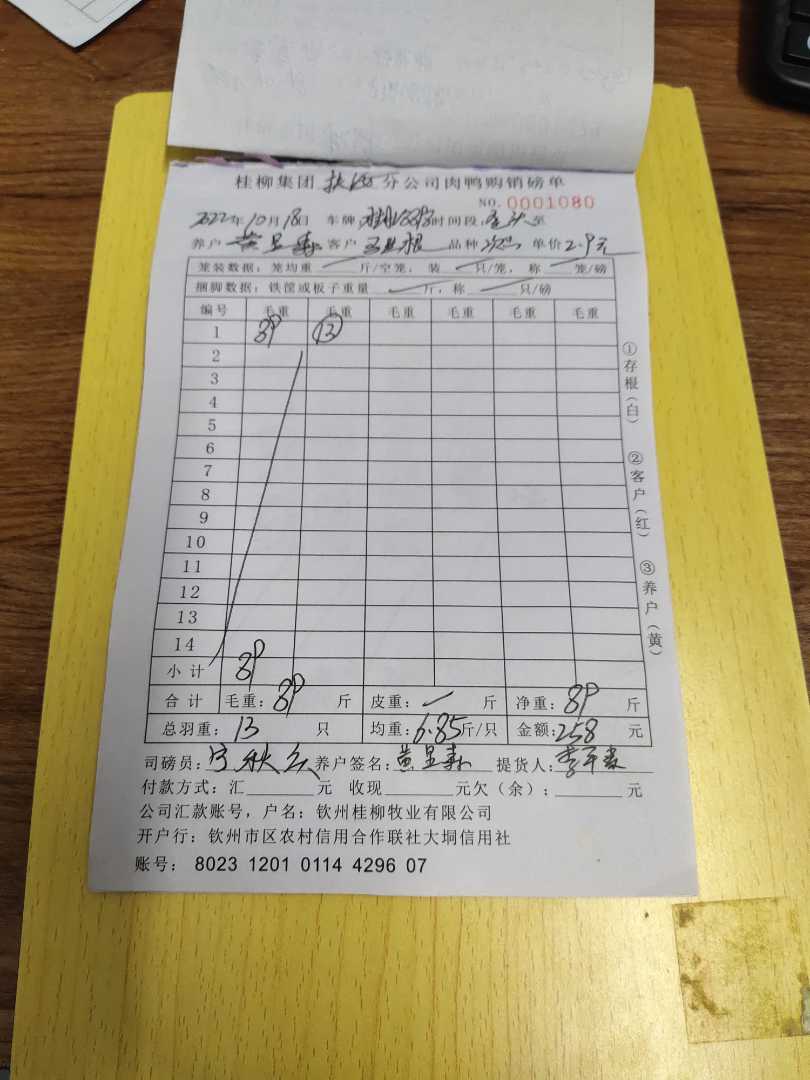 桂柳集团 分公司肉鸭购销磅单
NO. 0001080
2022年10月18日 车牌 时间段 至
养户 黄显 客户 王 根 品种 次 单价 2.9元
笼装数据：笼均重 斤/空笼，装 只/笼，称 笼/磅
捆脚数据：铁筐或板子重量 斤，称 只/磅
编号 毛重 毛重 毛重 毛重 毛重 毛重
1 89 13
2
3
4
5
6
7
8
9
10
11
12
13
14
小计 89
合计 毛重：89 斤 皮重： 斤 净重：89 斤
总羽重：13 只 均重：6.85斤/只 金额：258 元
司磅员： 秋 养户签名：黄显 提货人：李
付款方式：汇 元 收现 元欠（余）； 元
公司汇款账号，户名：钦州桂柳牧业有限公司
开户行：钦州市区农村信用合作联社大垌信用社
账号： 8023 1201 0114 4296 07
①存根（白） ②客户（红） ③养户（黄）